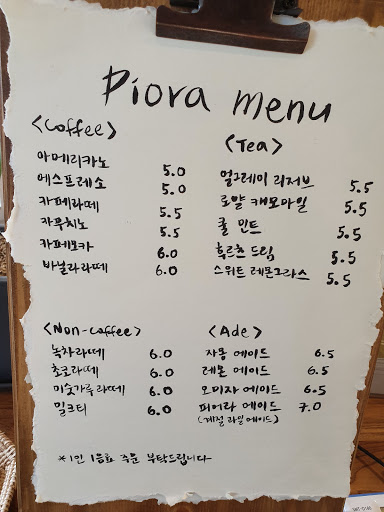 Piora menu
<Coffee>
아메리카노 5.0
에스프레소 5.0
카페라떼 5.5
카푸치노 5.5
카페모카 6.0
바닐라라떼 6.0
<Tea>
얼그레이 리저브 5.5
로얄 캐모마일 5.5
쿨 민트 5.5
후르츠 드림 5.5
스위트 레몬그라스 5.5
<Non-coffee>
녹차라떼 6.0
초코라떼 6.0
미숫가루라떼 6.0
밀크티 6.0
<Ade>
자몽 에이드 6.5
레몬 에이드 6.5
오미자 에이드 6.5
피어라 에이드 7.0
(계절 과일 에이드)
*1인 1음료 주문 부탁드립니다